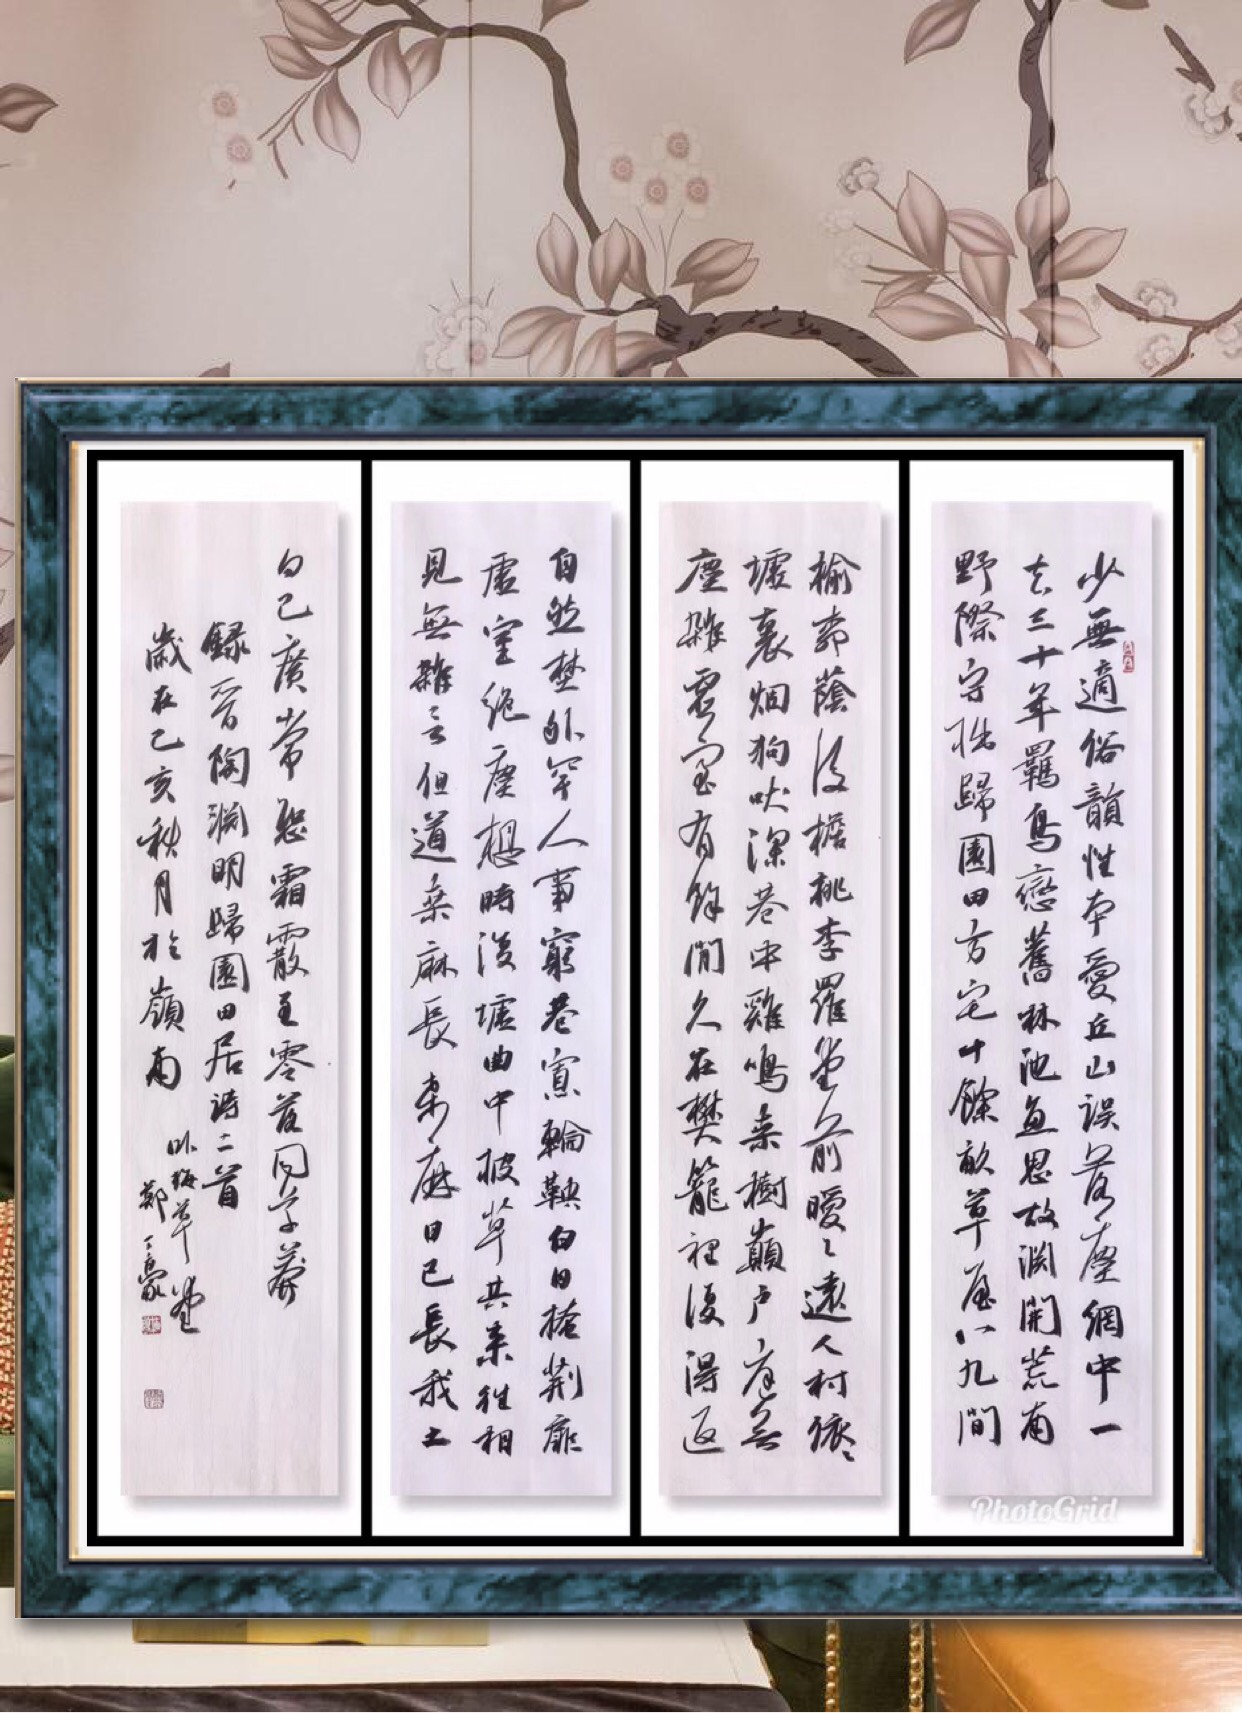 少無適俗韻性本愛丘山誤落塵網中一
去三十年羈鳥戀舊林池魚思故淵開荒南
野際守拙歸園田方宅十餘畝草屋八九間
榆柳蔭後檐桃李羅堂前曖〻遠人村依〻
墟裏烟狗吠深巷中雞鳴桑樹巔户庭無
塵雜虛室有餘閒久在樊籠裡復得返
自然野外罕人事窮巷寡輪鞅白日掩荊扉
虛室絕塵想時復墟曲中披草共來往相
見無雜言但道桑麻長桑麻日已長我土
白已廣常恐霜霰至零落同草莽
錄晉陶淵明歸園田居詩二首
歲在己亥秋月於嶺南
卧梅草堂
鄭丁豪
PhotoGrid